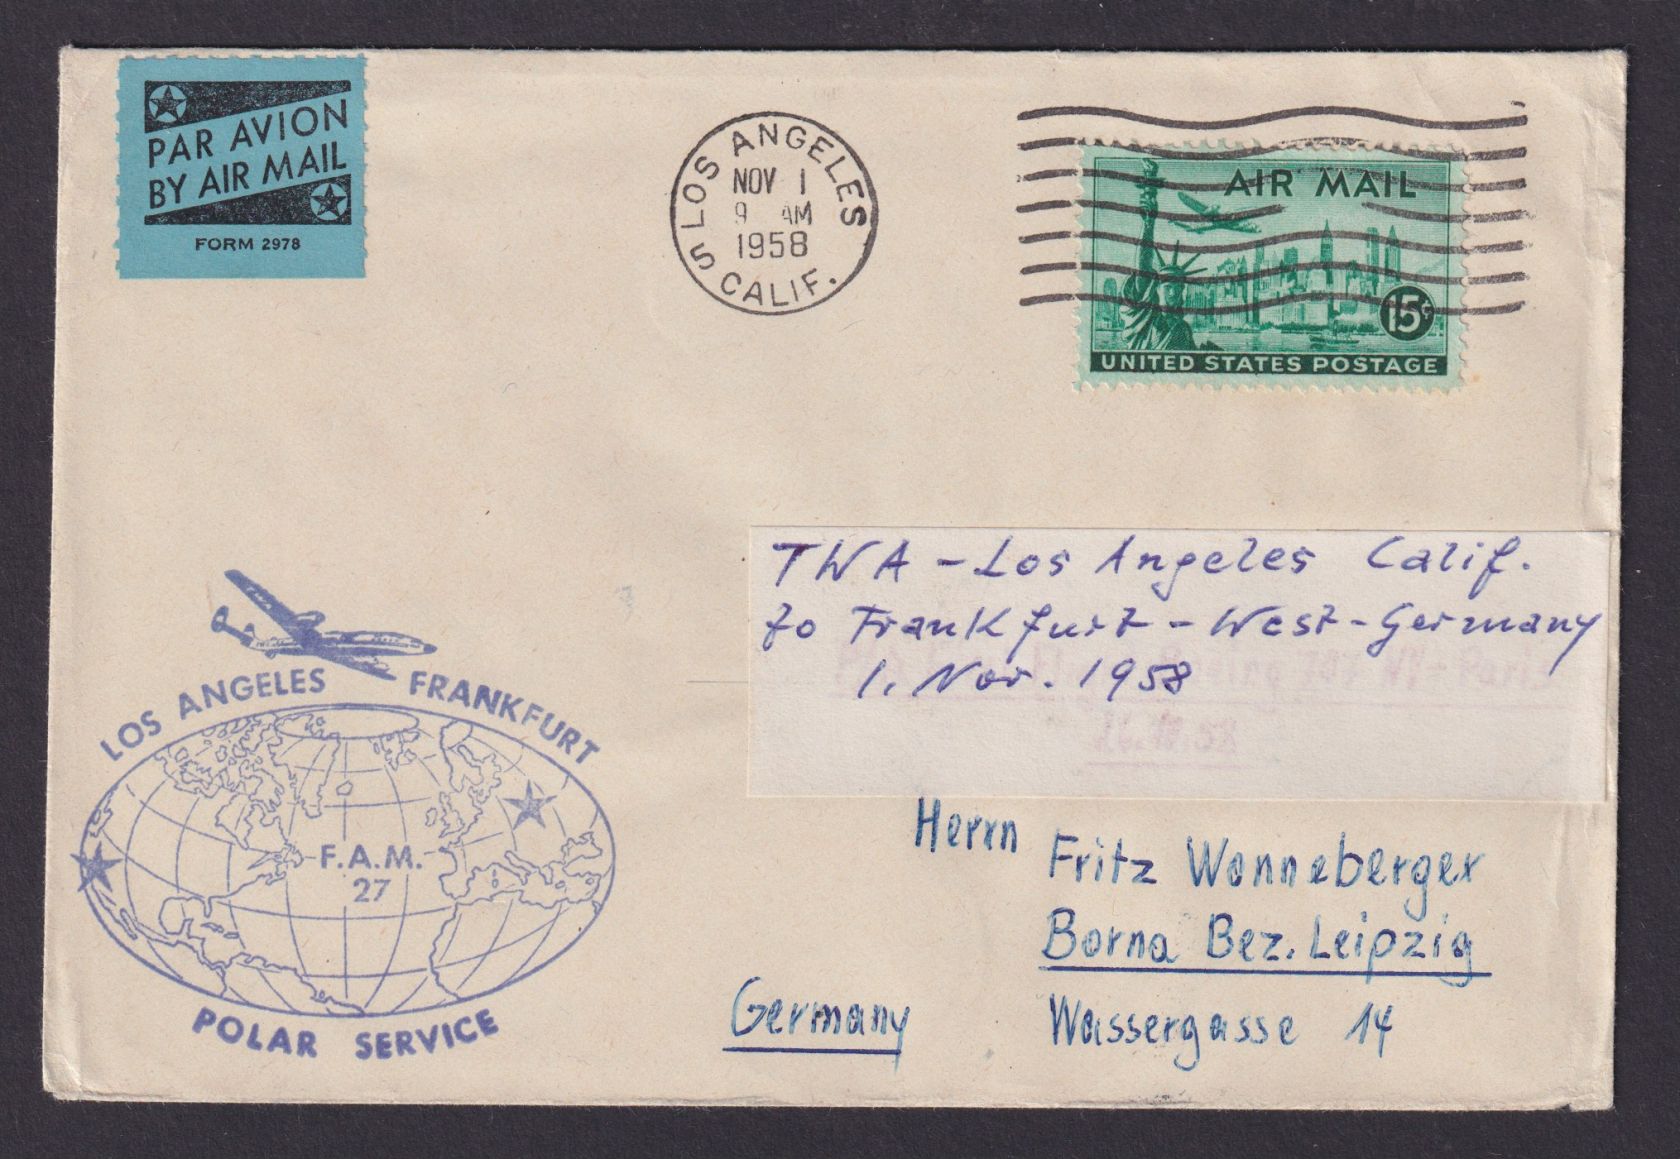 PAR AVION
BY AIR MAIL
FORM 2978
LOS ANGELES
NOV 1
9 AM
1958
5 CALIF.
AIR MAIL
15¢
UNITED STATES POSTAGE
TWA - Los Angeles Calif.
to Frankfurt - West-Germany
1. Nov. 1958
LOS ANGELES FRANKFURT
F.A.M.
27
POLAR SERVICE
Herrn Fritz Wonneberger
Borna Bez. Leipzig
Germany Wassergasse 14